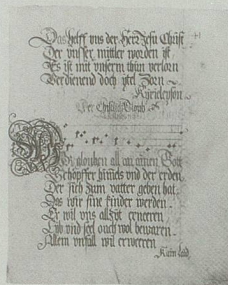 Das helff vns der Herr Jesu Christ
Der vnser mittler worden ist
Es ist mit vnserm thun verlorn
Verdienend doch ytel Zorn
Kyrieleyson
Der Christlich Gloub
Wir glouben all an einen Gott
Schöpffer himels vnd der erden
Der sich zum vatter geben hat
Das wir sine kinder werden
Er wil vns allzÿt erneeren
Lib vnd seel ouch wol bewaren
Allem vnfall wil er weeren
Kein leid